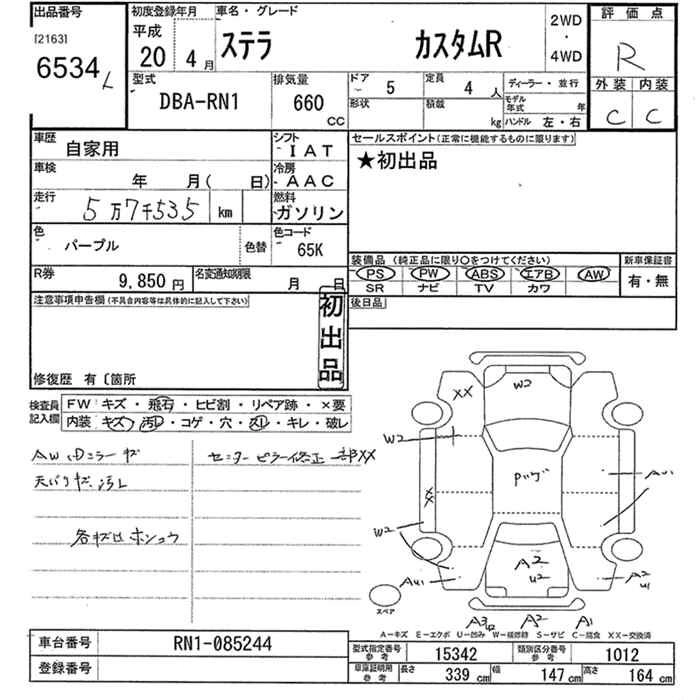 出品番号
[2163]
6534
初度登録年月
平成
20 4月
車名・グレード
ステラ カスタムR
2WD
・
4WD
評価点
R
外装 内装
C C
型式
DBA-RN1
排気量
660
CC
ドア
5
定員
4 人
ディーラー・並行
形状
積載
kg
モデル年式 年
ハンドル 左・右
車歴
自家用
シフト
IAT
セールスポイント(正常に機能するものに限ります)
★初出品
車検
年 月( 日)
冷房
AAC
走行
5万7千535 km
燃料
ガソリン
色
パープル
色替
色コード
65K
装備品 (純正品に限り○をつけてください)
新車保証書
PS PW ABS エアB AW
有・無
SR ナビ TV カワ
R券
9,850 円
名変通知期限
月 日
後日品
注意事項申告欄 (不具合内容等は具体的に記入して下さい)
初出品
修復歴 有〔箇所
検査員記入欄
FW キズ・飛石・ヒビ割・リペア跡・×要
内装 キズ・汚れ・コゲ・穴・スレ・キレ・破レ
センターピラー修正 一部XX
各キズ凹
XX
W2
W2
XX
W2
AU1
AU1
A2
U2
A2
U1
A3
U2
A2
A1
スペア
A-キズ E-エクボ U-凹み W-補修跡 S-サビ C-腐食 XX-交換済
車台番号
RN1-085244
登録番号
型式指定番号 参考
15342
類別区分番号 参考
1012
車庫証明用 参考
長さ 339 cm 幅 147 cm 高さ 164 cm